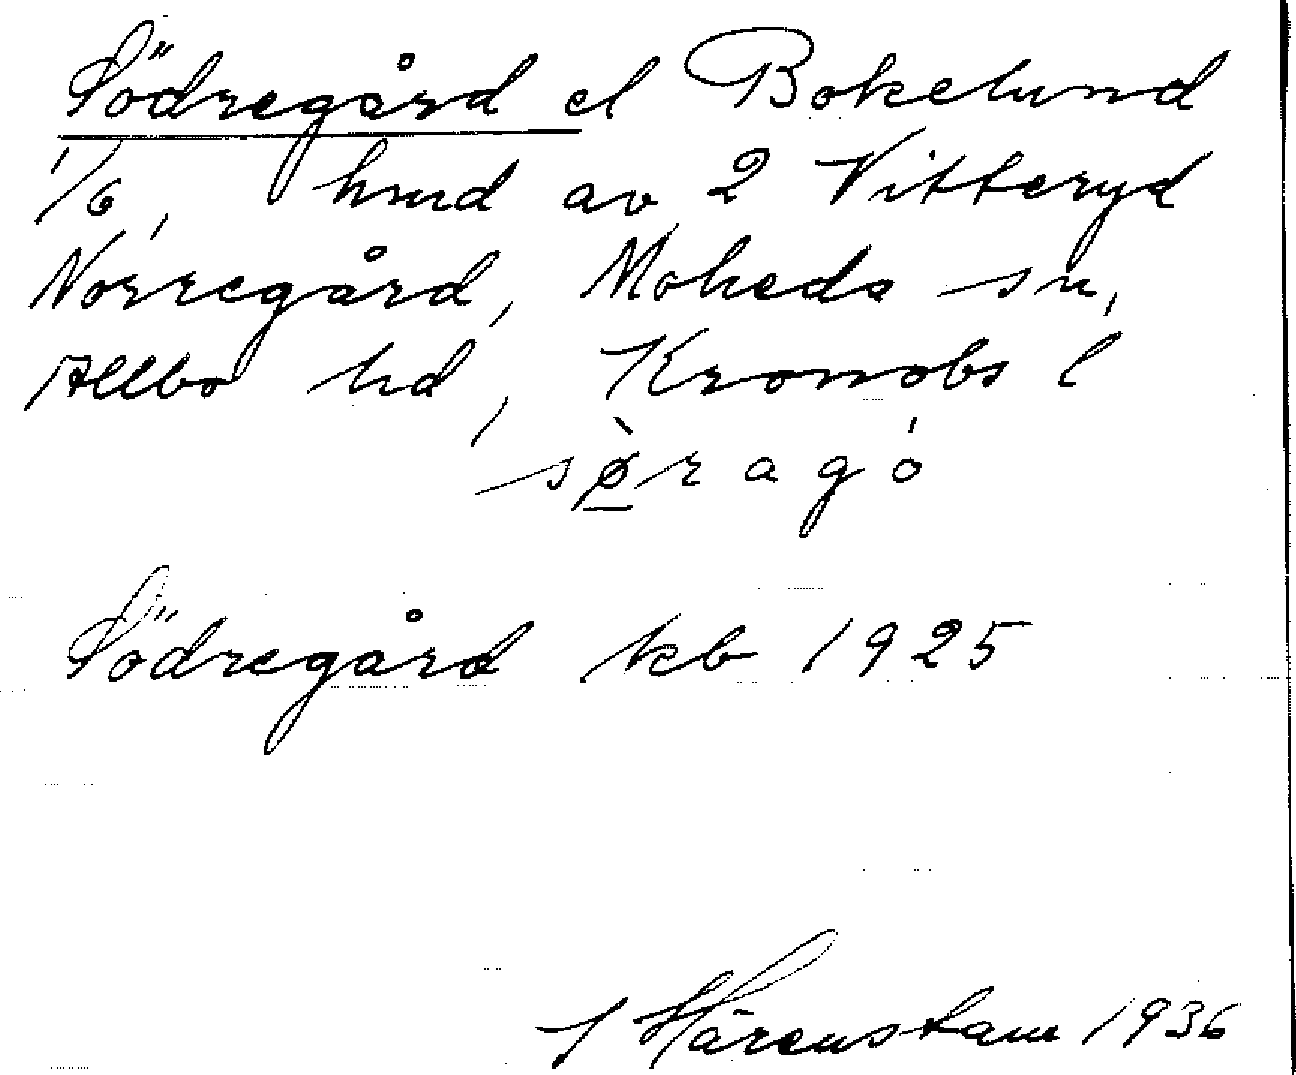 Södregård el Bokelund
1/6, hmd av 2 Vitteryd
Norregård, Moheda sn,
Allbo hd, Kronobs l
sø̀ragó
Södregård kb 1925
J Härenstam 1936